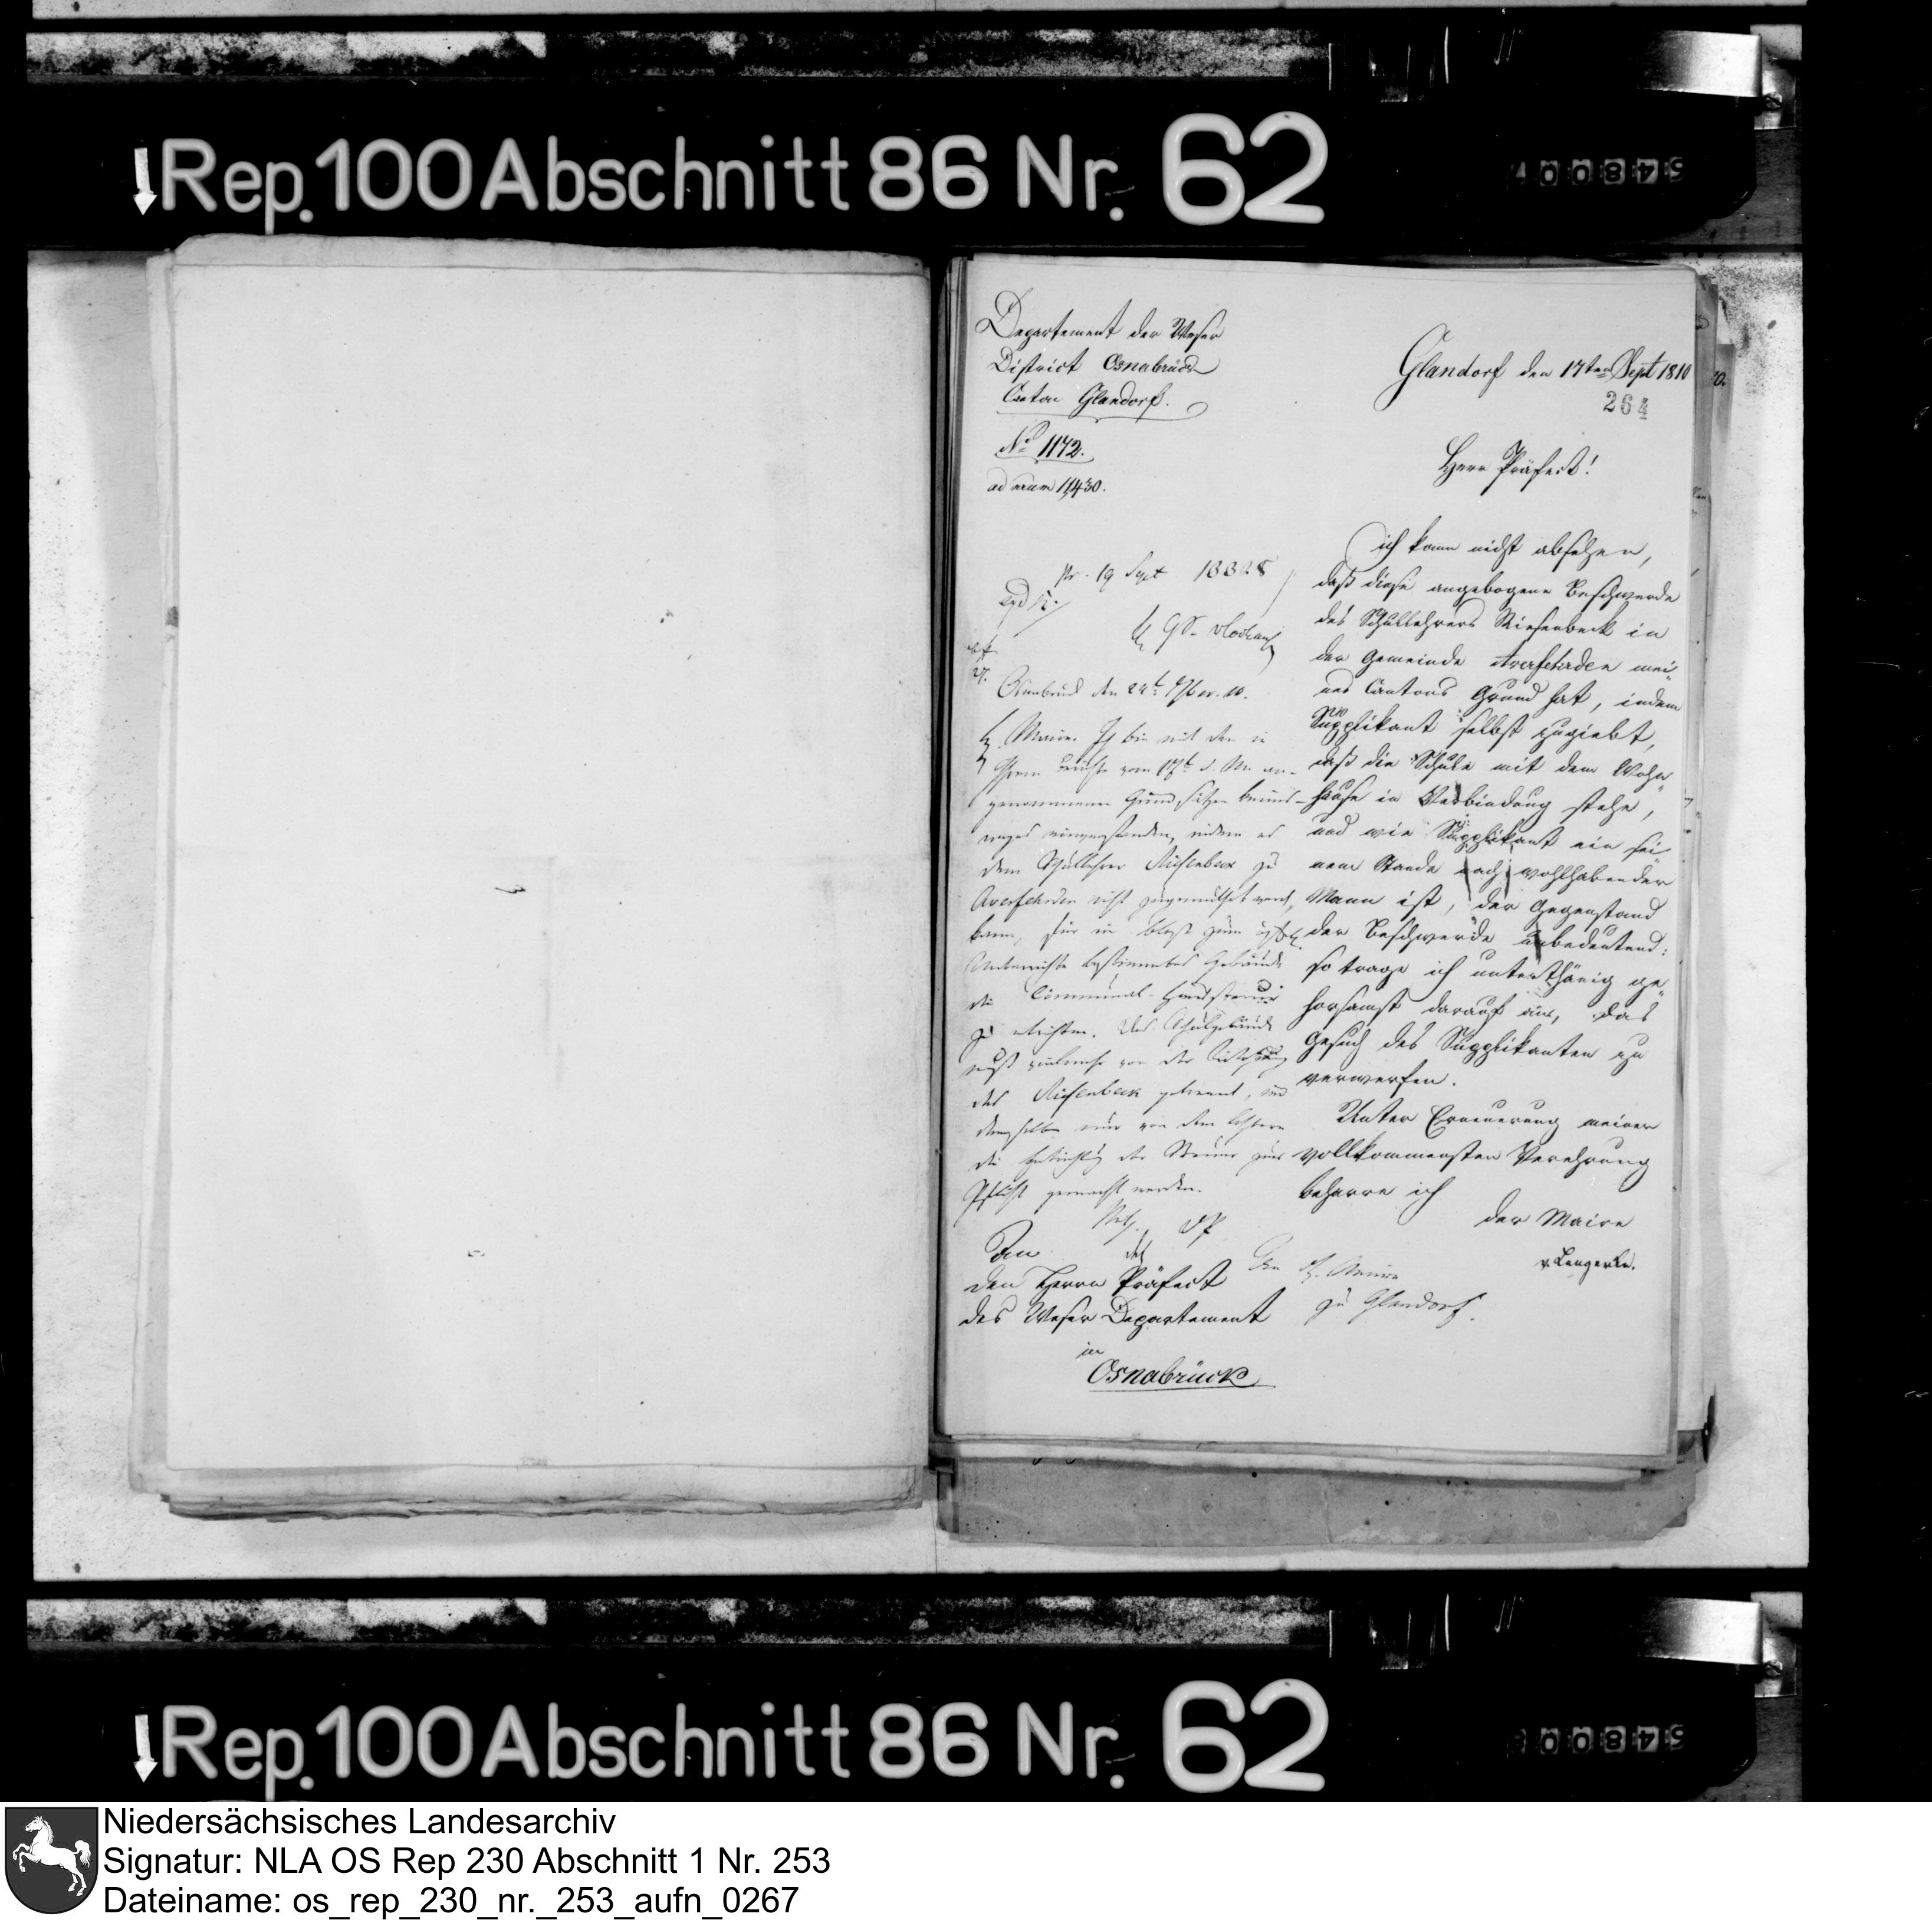 Rep. 100 Abschnitt 86 Nr. 62
Departement der Weser
District Osnabrück
Canton Glandorf.
No 1172.
ad num 11430.
Glandorf den 17ten Sept 1810
264
Herr Präfect!
ich kann nicht absehen,
daß diese angebogene Beschwerde
des Schullehrers Riesenbeck in
der Gemeinde Averfehrden mei„
nes Cantons Grund hat, indem
Supplikant selbst zugiebt,
daß die Schule mit dem Wohn„
hause in Verbindung stehe,
und wie Supplikant ein sei„
nem Stande nach wohlhabender
Mann ist, der Gegenstand
der Beschwerde unbedeutend:
so trage ich unterthänig ge„
horsamst darauf an, das
Gesuch des Supplikanten zu
verwerfen.
Unter Erneuerung meiner
vollkommensten Verehrung
beharre ich
der Maire
v. Lengerke.
pr. 19 Sept
Osnabrück den
H. Maire. Ich bin mit den in
Ihrem Berichte vom 17t d. M. an-
genommenen Grundsätzen
einverstanden, indem es
dem Schullehrer Riesenbeck zu
Averfehrden nicht zugemuthet werd.
kann, für ein bloß zum
Unterrichte bestimmtes Gebäude
die Communal-Grundsteuer
zu entrichten. Das Schulgebäude
muß vielmehr von der
des Riesenbeck getrennt, und
demselben nur von dem letztern
die der Steuer zur
Pflicht gemacht werden.
An
den Herrn Präfect
des Weser Departement
in
Osnabrück
An H. Maire
zu Glandorf.
Rep. 100 Abschnitt 86 Nr. 62
Niedersächsisches Landesarchiv
Signatur: NLA OS Rep 230 Abschnitt 1 Nr. 253
Dateiname: os_rep_230_nr._253_aufn_0267